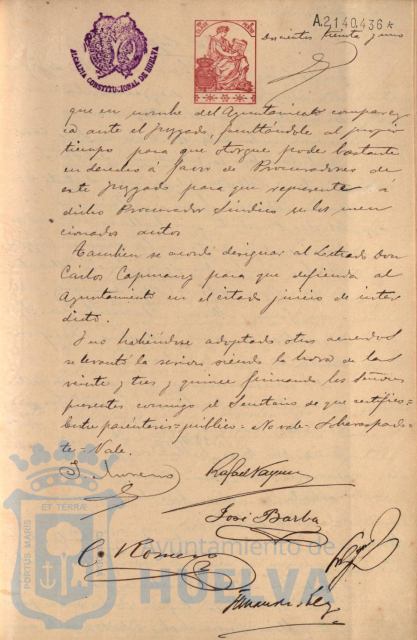 ALCALDIA CONSTITUCIONAL DE HUELVA
A.2140.436*
doscientos treinta y uno
que en nombre del Ayuntamiento comparez
ca ante el Juzgado, facultándole al propio
tiempo para que otorgue poder bastante
en derecho á favor de Procuradores de
este Juzgado para que represente á
dicho Procurador Síndico en los men
cionados autos
Tambien se acordó designar al Letrado Don
Cárlos para que defienda al
Ayuntamiento en el citado juicio de inter
dicto.
Y no habiéndose adoptado otros acuerdos
se levantó la sesion siendo la hora de las
veinte y tres y quince firmando los Señores
presentes conmigo el Secretario de que certifico=
Entre paréntesis=publico=No vale=Sobreraspado=
te=Vale.
Rafael
José Barba
C. Romero
Ayuntamiento de
HUELVA
PORTUS MARIS
ET TERRÆ